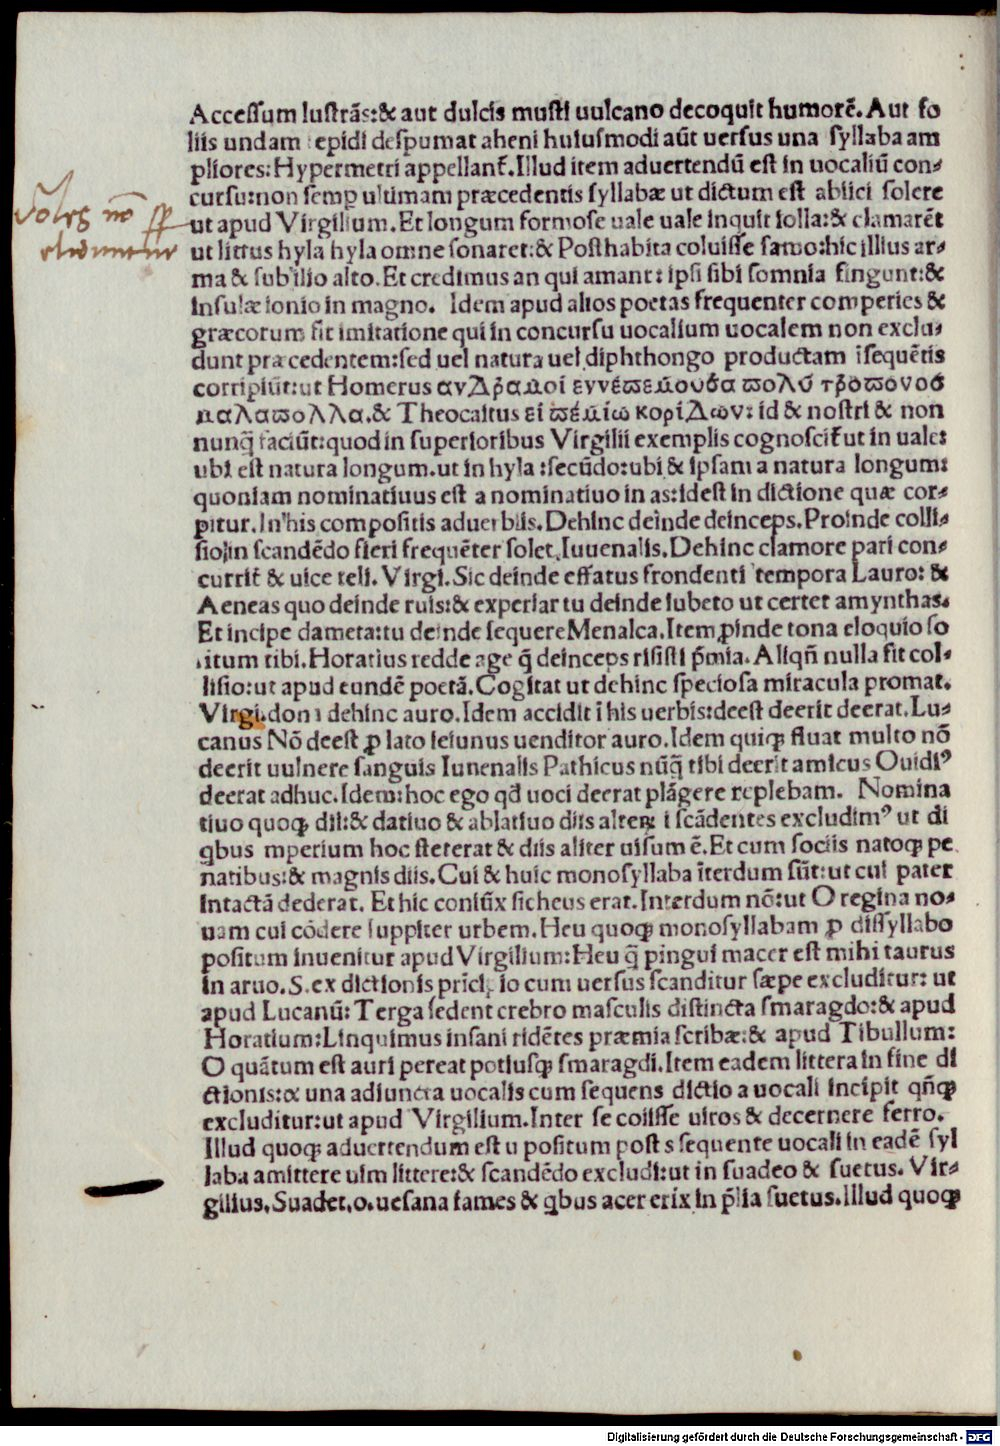 Accessum lustrās:& aut dulcis musti uulcano decoquit humorē. Aut fo
liis undam tepidi despumat aheni huiusmodi aūt uersus una syllaba am
pliores: Hypermetri appellant̃. Illud item aduertendū est in uocaliū con-
cursu: non semp ultimam præcedentis syllabæ ut dictum est abiici solere
ut apud Virgilium. Et longum formose uale uale inquit iolla:& clamarēt
ut littus hyla hyla omne sonaret:& Posthabita coluisse samo: hic illius ar-
ma & sub ilio alto. Et credimus an qui amant: ipsi sibi somnia fingunt:&
insulæ ionio in magno. Idem apud alios poetas frequenter comperies &
græcorum fit imitatione qui in concursu uocalium uocalem non exclu-
dunt præcedentem: sed uel natura uel diphthongo productam īsequētis
corripiūt: ut Homerus ανΔραμοί εννέπεμουσα πολύ τροπονοσ
μαλαπολλα. & Theocritus εί πέμίω κορίΔων: id & nostri & non
nunq̄ faciūt: quod in superioribus Virgilii exemplis cognoscit̃ ut in uale:
ubi est natura longum. ut in hyla: secūdo: ubi & ipsam a natura longum:
quoniam nominatiuus est a nominatiuo in as: idest in dictione quæ cor-
pitur. In his compositis aduerbiis. Dehinc deinde deinceps. Proinde colli-
sio in scandēdo fieri frequēter solet. Iuuenalis. Dehinc clamore pari con-
currit̃ & uice teli. Virgi. Sic deinde effatus frondenti tempora Lauro: &
Aeneas quo deinde ruis:& experiar tu deinde iubeto ut certet amynthas.
Et incipe dameta: tu deinde sequere Menalca. Item ꝓinde tona eloquio so
itum tibi. Horatius redde age q̄ deinceps risisti p̄mia. Aliqñ nulla fit col-
lisio: ut apud eundē poetā. Cogitat ut dehinc speciosa miracula promat.
Virgi. dona dehinc auro. Idem accidit ī his uerbis: deest deerit deerat. Lu-
canus Nō deest ꝓlato ieiunus uenditor auro. Idem quiqꝫ fluat multo nō
deerit uulnere sanguis Iunenalis Pathicus nūq̄ tibi deerit amicus Ouidiꝰ
deerat adhuc. Idem: hoc ego qđ uoci deerat plāgere replebam. Nomina
tiuo quoqꝫ dii:& datiuo & ablatiuo diis alteꝝ i scādentes excludimꝰ ut di
q̄bus mperium hoc steterat & diis aliter uisum ē. Et cum sociis natoqꝫ pe
natibus:& magnis diis. Cui & huic monosyllaba īterdum sūt: ut cui pater
intactā dederat. Et hic coniūx sicheus erat. Interdum nō: ut O regina no-
uam cui cōdere iuppiter urbem. Heu quoqꝫ monosyllabam ꝓ dissyllabo
positum inuenitur apud Virgilium: Heu q̄ pingui macer est mihi taurus
in aruo. S. ex dictionis prīcipio cum uersus scanditur sæpe excluditur: ut
apud Lucanū: Terga sedent crebro masculis distincta smaragdo:& apud
Horatium: Linquimus insani ridētes præmia scribæ:& apud Tibullum:
O quātum est auri pereat potiusqꝫ smaragdi. Item eadem littera in fine di
ctionis: & una adiuncta uocalis cum sequens dictio a uocali incipit qñqꝫ
excluditur: ut apud Virgilium. Inter se coiisse uiros & decernere ferro.
Illud quoqꝫ aduertendum est u positum post s sequente uocali in eadē syl
laba amittere uim littere:& scandēdo excludi: ut in suadeo & suetus. Vir-
gilius. Suadet, o. uesana fames & q̄bus acer erix in p̄lia suetus. Illud quoqꝫ
uoles nō sp
eliduntur
Digitalisierung gefördert durch die Deutsche Forschungsgemeinschaft - DFG